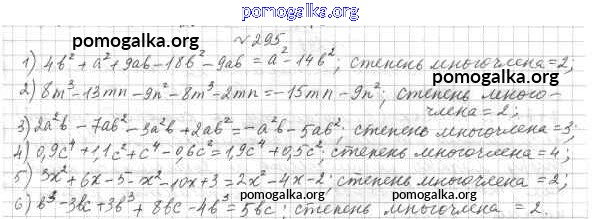 pomogalka.org
№ 295
pomogalka.org
1) 4b² + a² + 9ab - 18b² - 9ab = a² - 14b²; степень многочлена = 2;
pomogalka.org
2) 8m³ - 13mn - 9n² - 8m³ - 2mn = -15mn - 9n²; степень много-
члена = 2;
pomogalka.org
3) 2a²b - 7ab² - 3a²b + 2ab² = -a²b - 5ab²; степень многочлена = 3;
4) 0,9c⁴ + 1,1c² + c⁴ - 0,6c² = 1,9c⁴ + 0,5c²; степень многочлена = 4;
pomogalka.org
5) 3x² + 6x - 5 - x² - 10x + 3 = 2x² - 4x - 2; степень многочлена = 2;
pomogalka.org
6) b³ - 3bc + 3b³ + 8bc - 4b³ = 5bc; степень многочлена = 2.